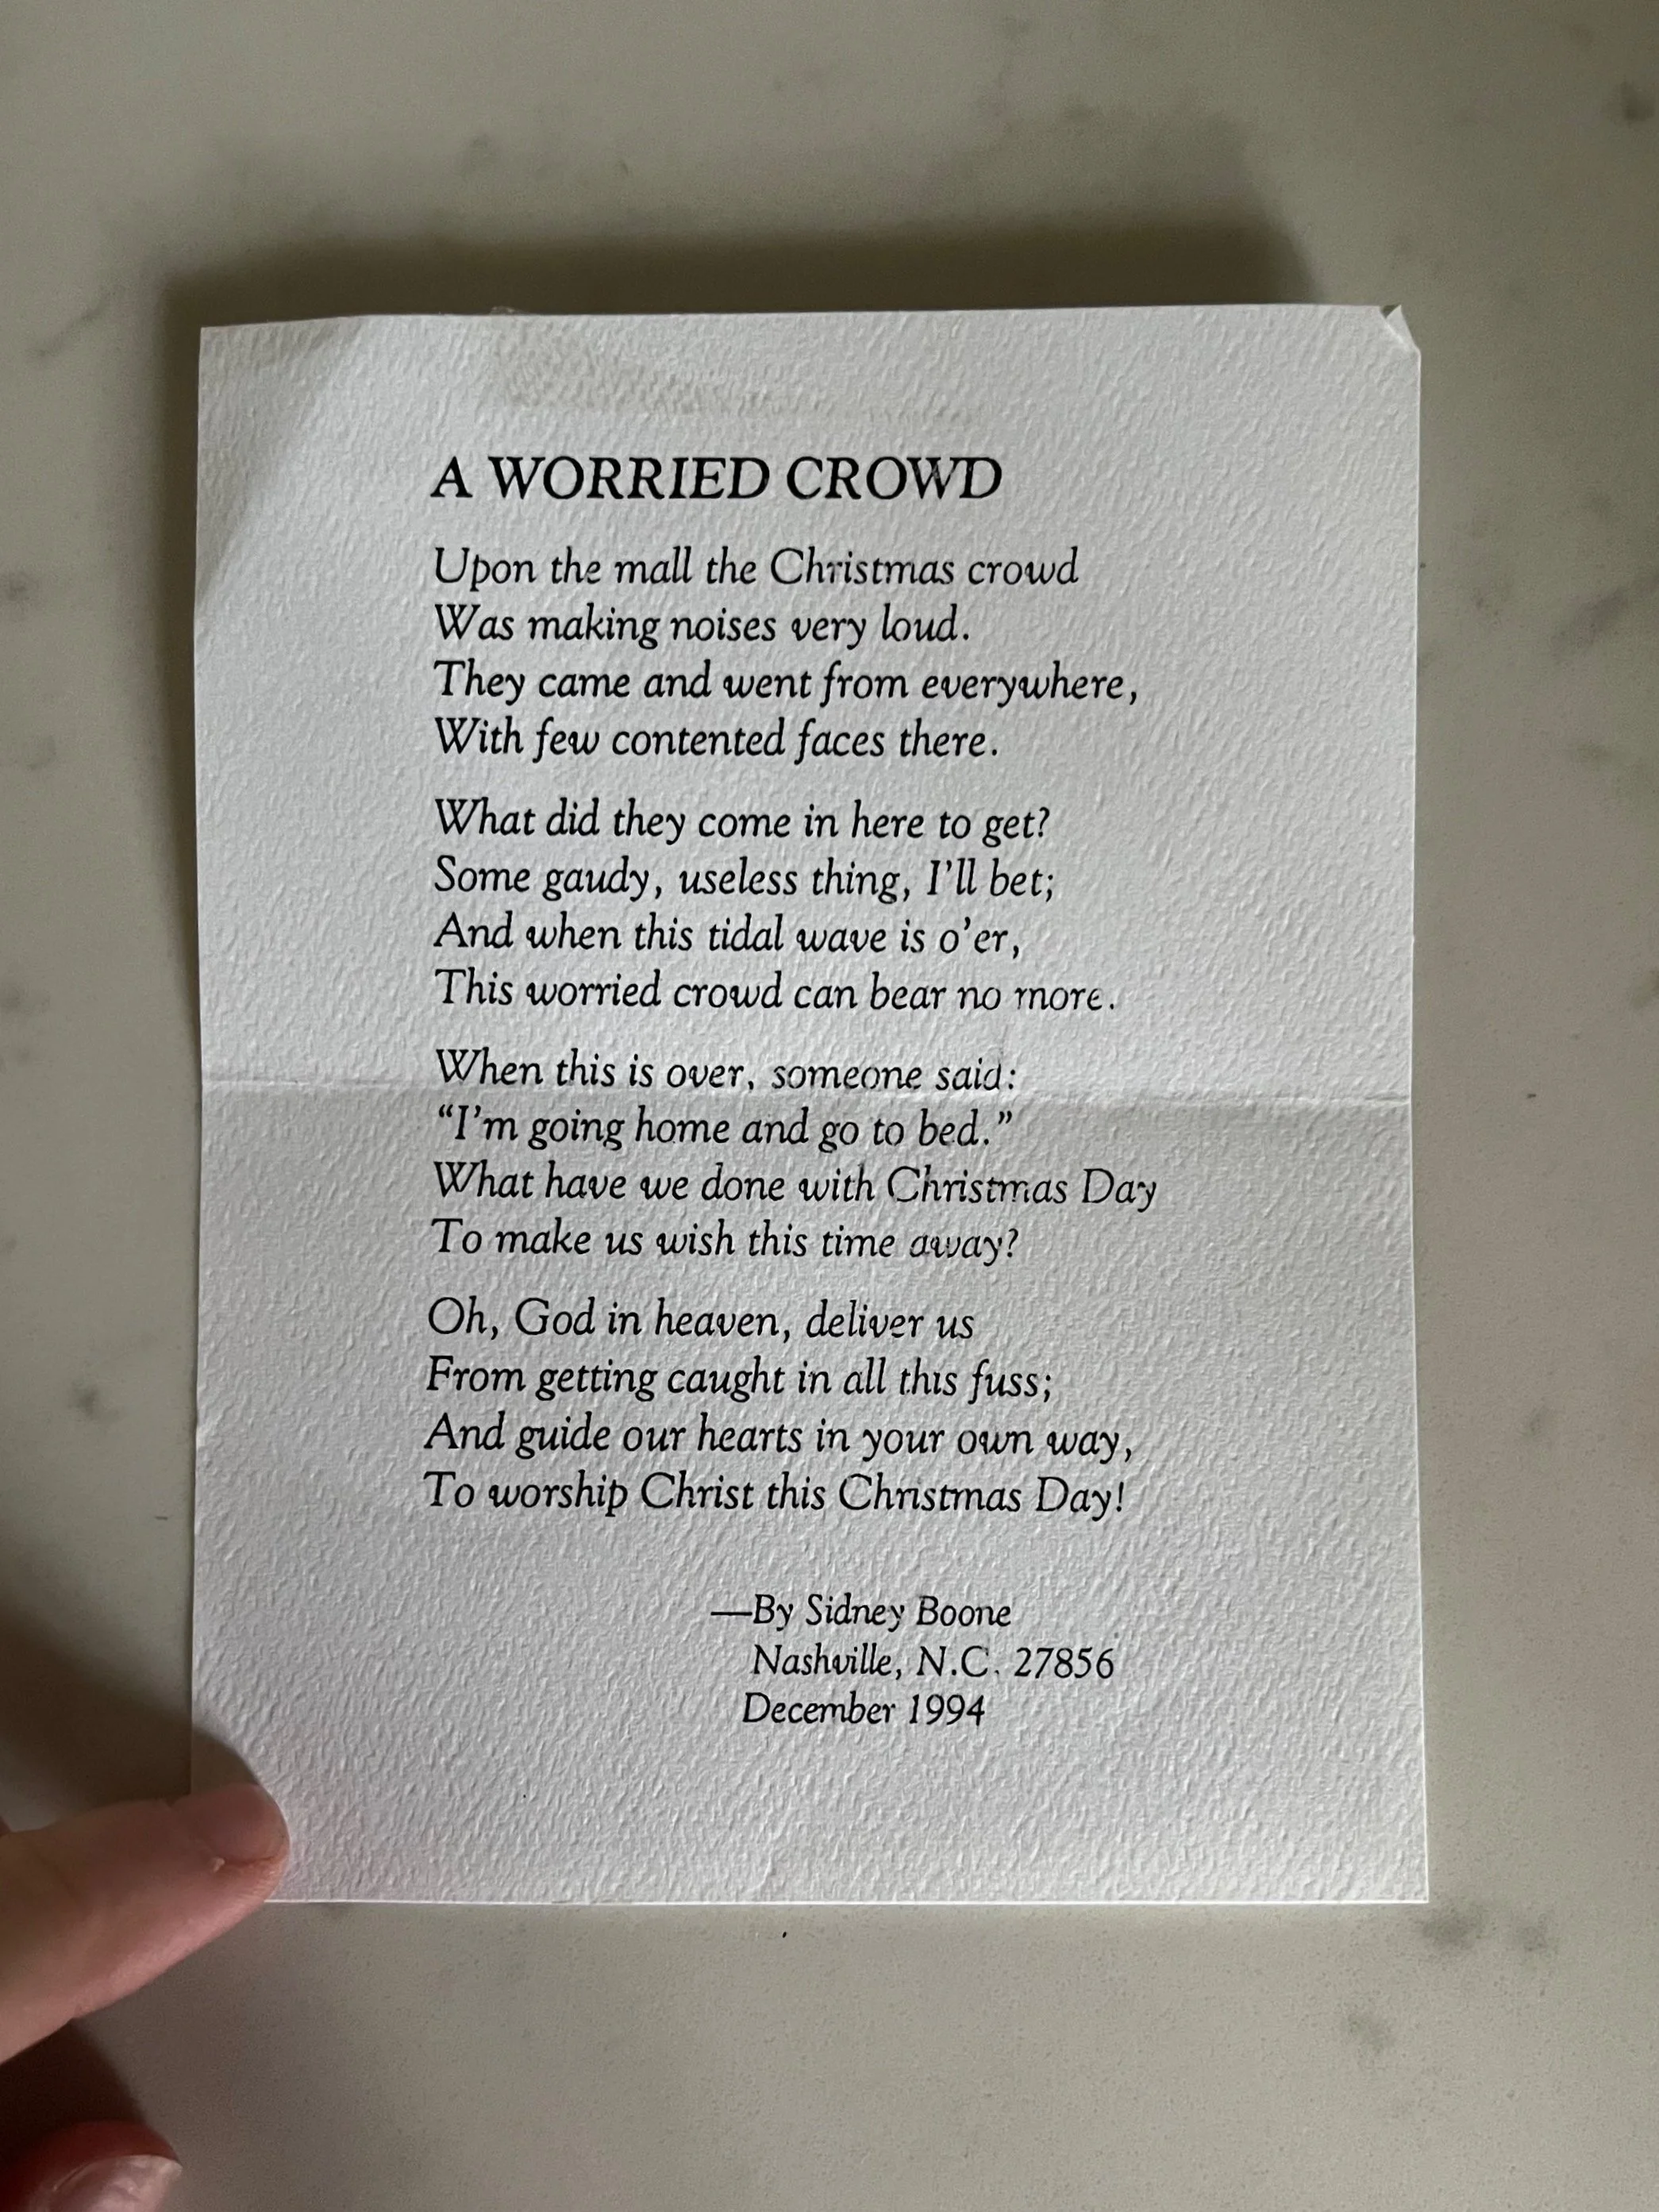 A WORRIED CROWD
Upon the mall the Christmas crowd
Was making noises very loud.
They came and went from everywhere,
With few contented faces there.
What did they come in here to get?
Some gaudy, useless thing, I'll bet;
And when this tidal wave is o'er,
This worried crowd can bear no more.
When this is over, someone said:
“I'm going home and go to bed.”
What have we done with Christmas Day
To make us wish this time away?
Oh, God in heaven, deliver us
From getting caught in all this fuss;
And guide our hearts in your own way,
To worship Christ this Christmas Day!
—By Sidney Boone
Nashville, N.C. 27856
December 1994